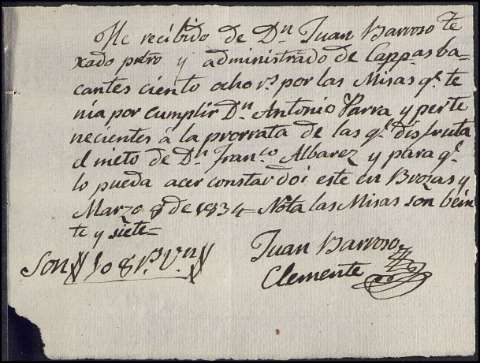 He recibido de Dn Juan Barroso te
xado pbro y administrado de Cappas ba
cantes ciento ocho rs por las Misas qe te
nia por cumplir Dn Antonio Parra y perte
necientes á la prorrata de las qe disfruta
el nieto de Dn Franco Albarez y para qe
lo pueda acer constar doi este en Brozas y
Marzo 8 de 1834 Nota las Misas son bein
te y siete
Son 108 rs Vn
Juan Barroso
Clemente